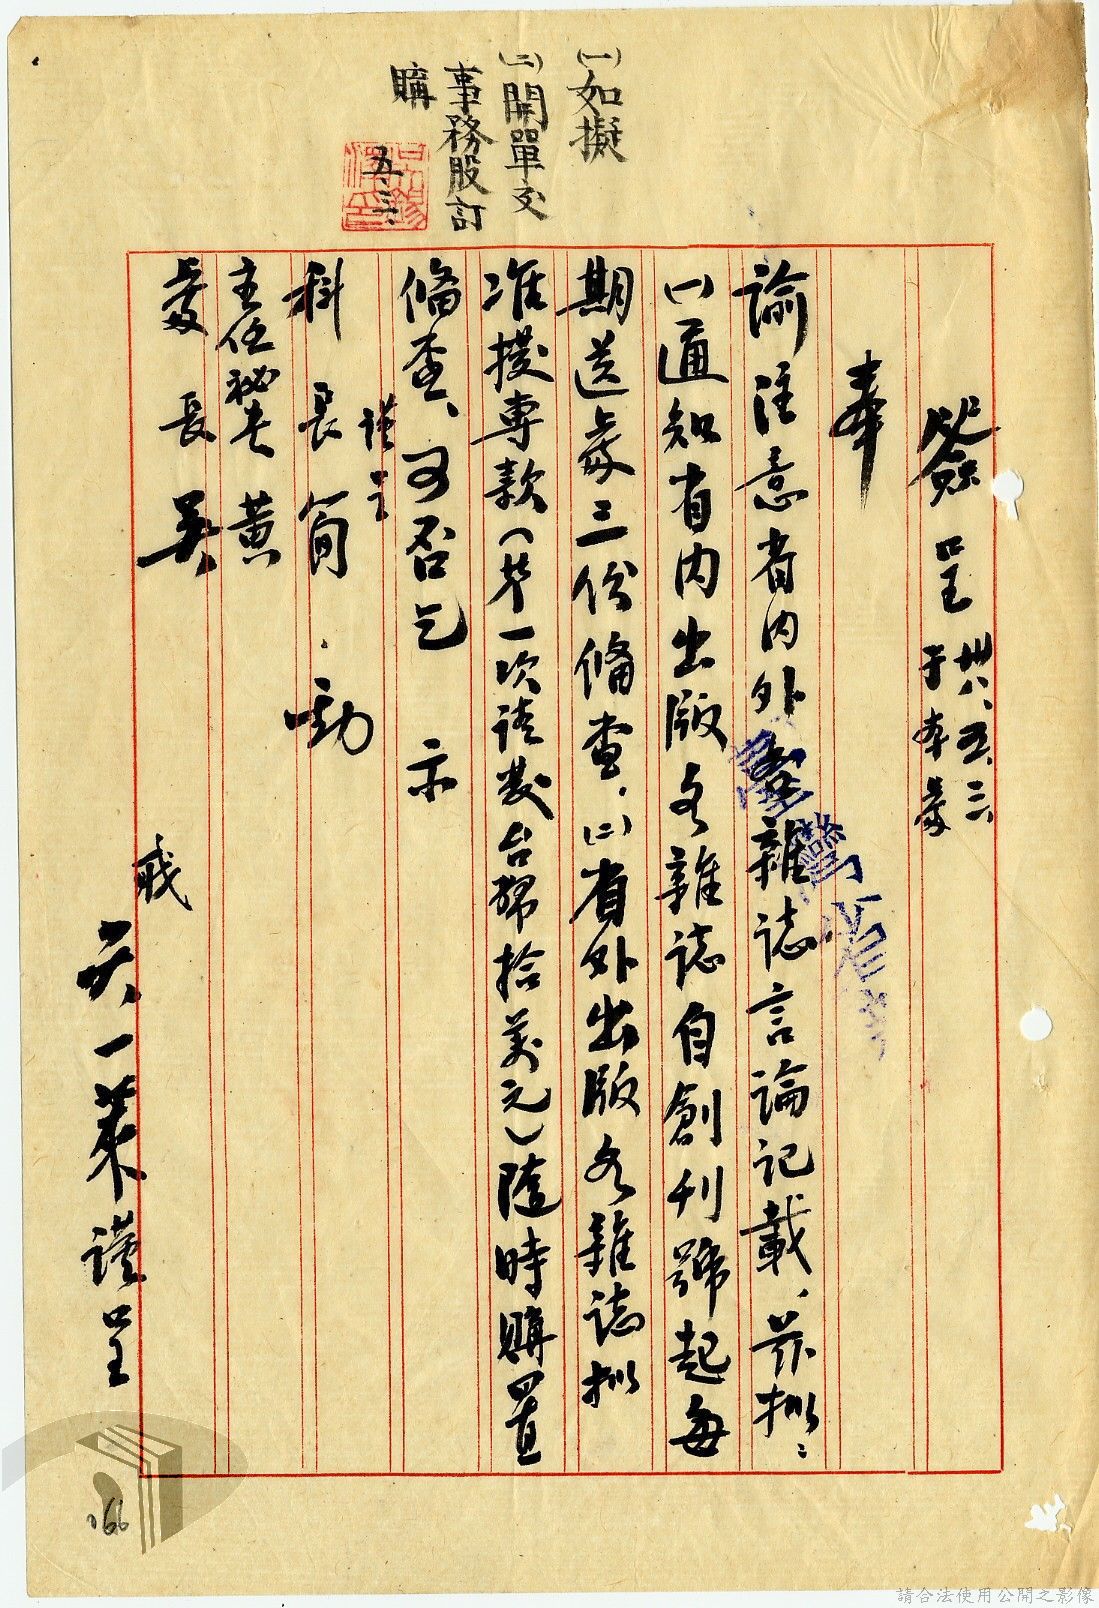 (一)如擬
(二)開單交
事務股訂
購
五.三.
簽呈 卅八、五、三
于本處
奉
諭注意省內外雜誌言論記載、茲擬：
(一)通知省內出版各雜誌自創刊號起每
期送處三份備查．(二)省外出版各雜誌擬
准撥專款(第一次請發台幣拾萬元)隨時購置
備查、可否乞 示
謹呈
科長簡
主任祕書黃
處長吳
職
天一萊謹呈
166
請合法使用公開之影像